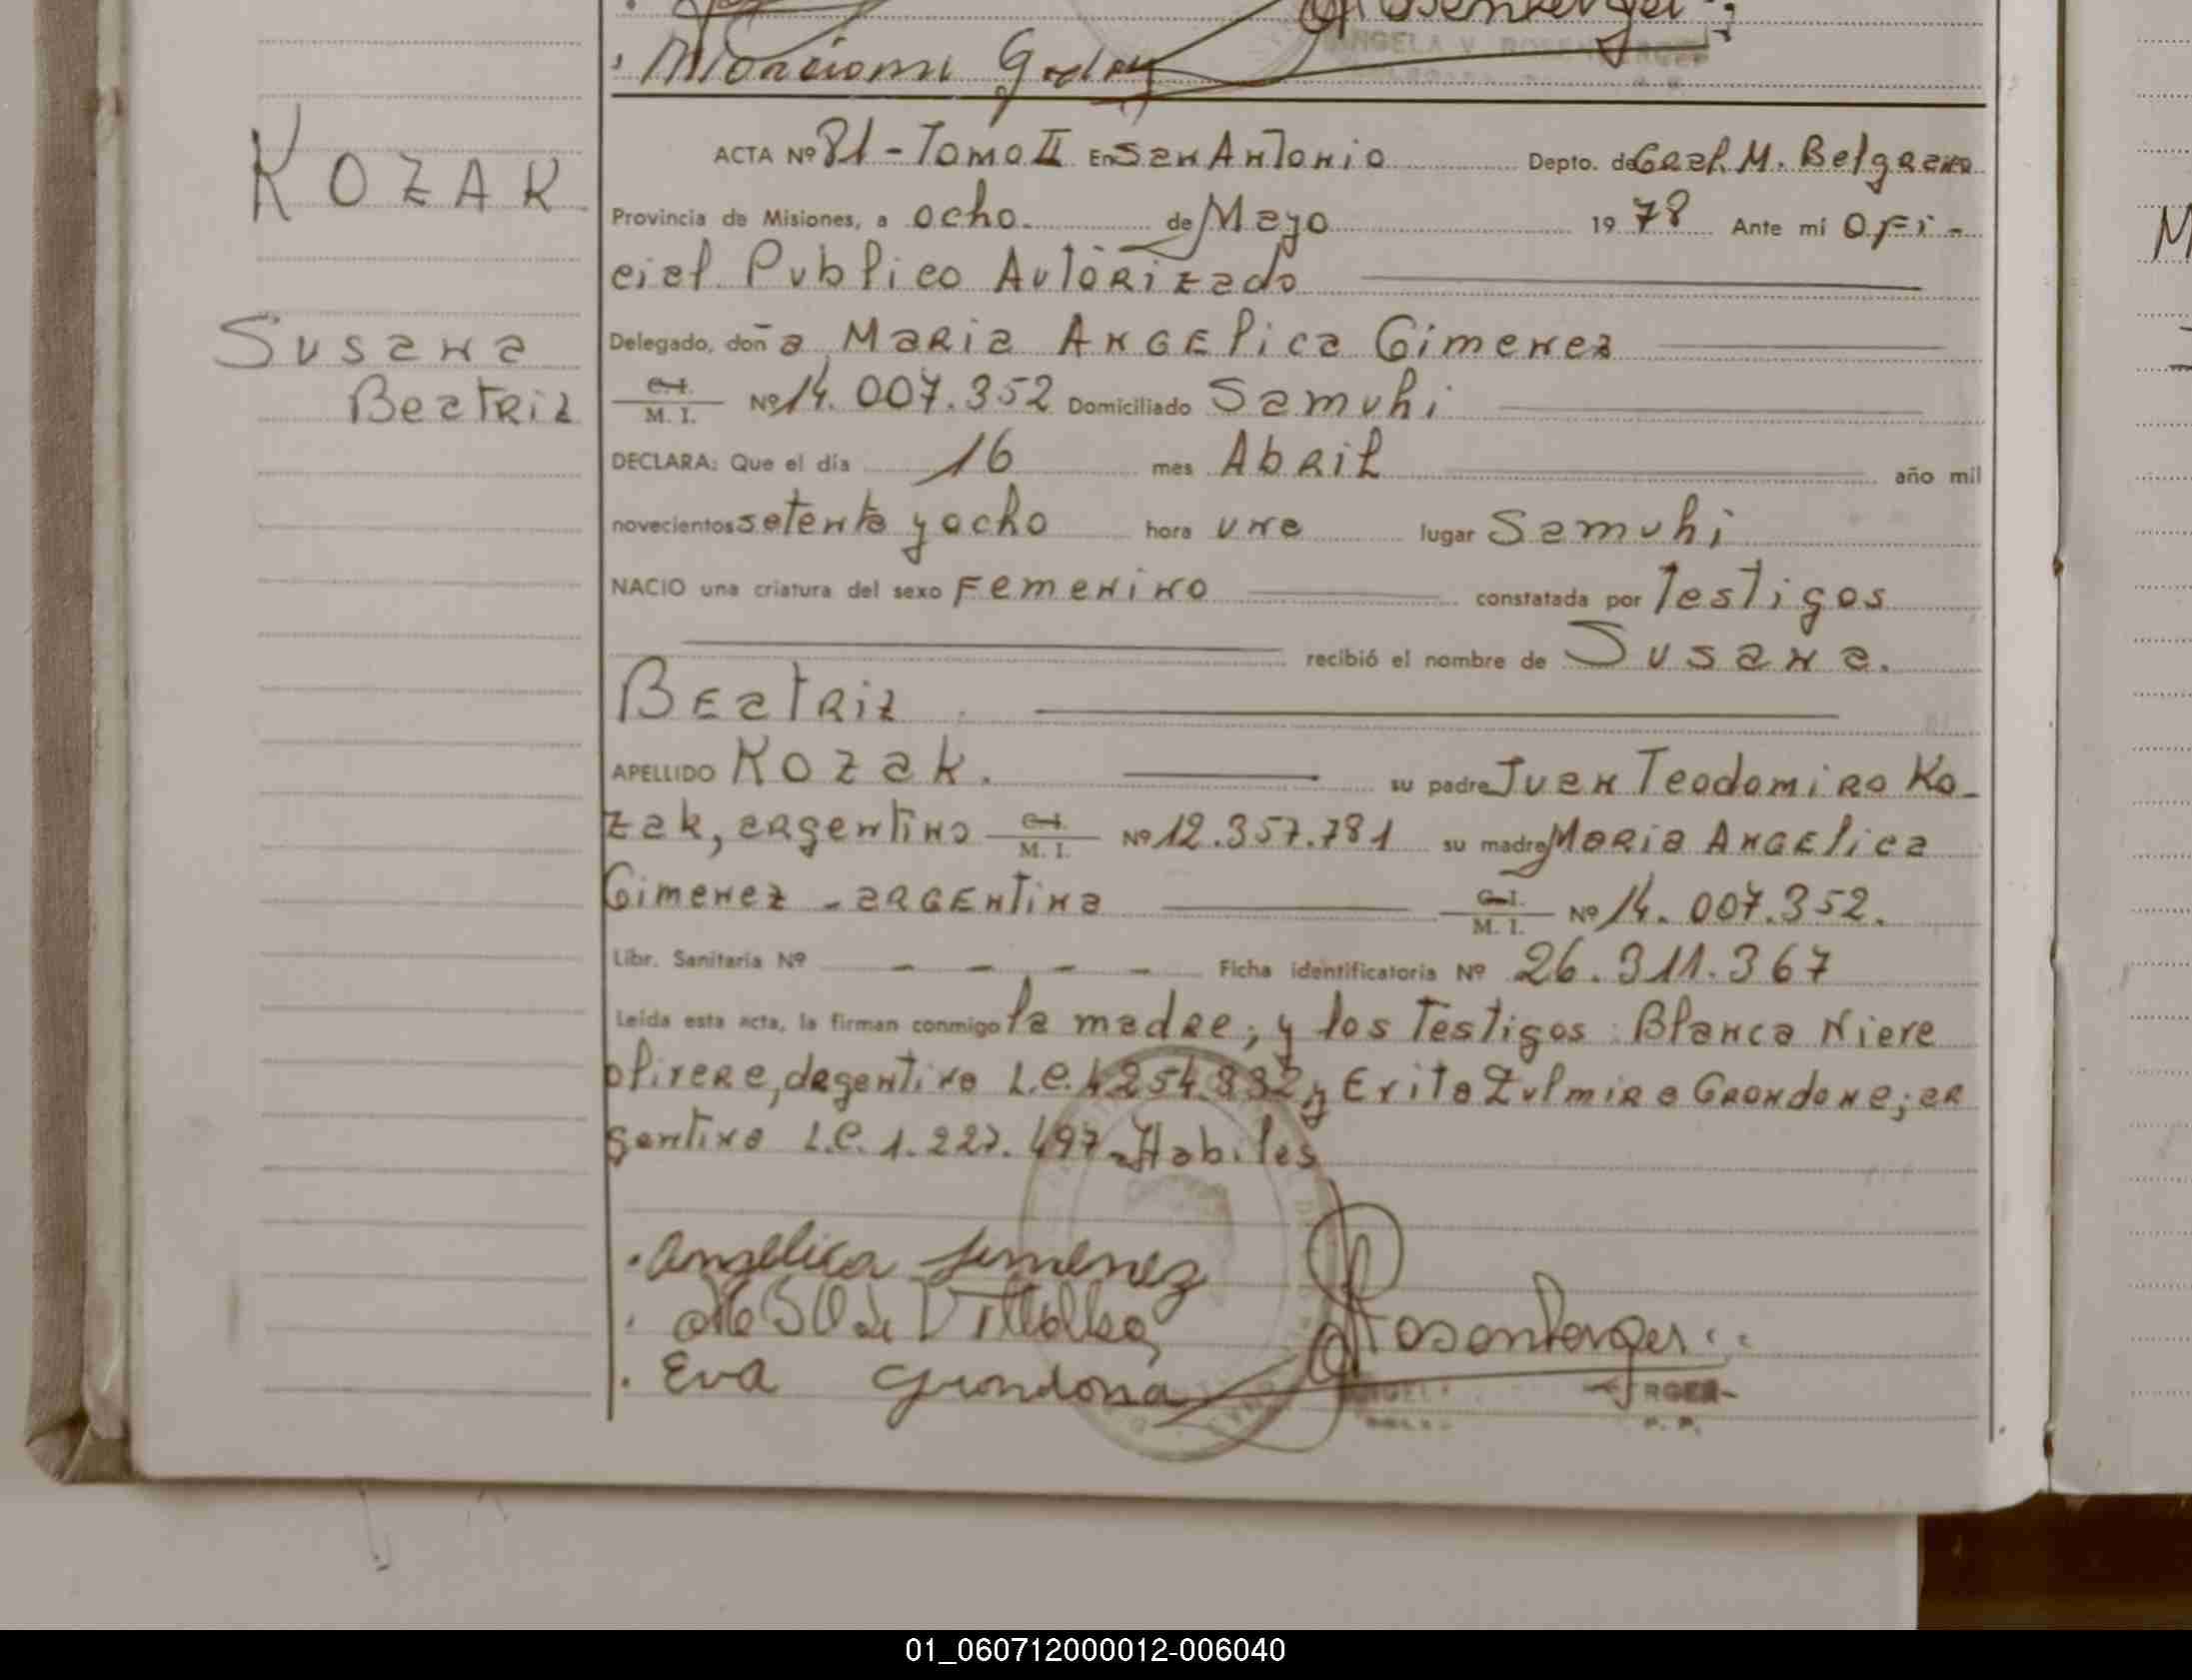 Marciana Godoy
ANGELA V. ROSENBERGER
KOZAK
Susana
Beatriz
ACTA Nº 81 - Tomo II En San Antonio Depto. de Gral. M. Belgrano
Provincia de Misiones, a ocho de Mayo 1978 Ante mí Ofi-
cial Publico Autorizado
Delegado, doña Maria Angelica Gimenez
C.I. M. I. Nº 14.007.352 Domiciliado Samuhi
DECLARA: Que el día 16 mes Abril año mil
novecientos setenta y ocho hora una lugar Samuhi
NACIO una criatura del sexo Femenino constatada por Testigos
recibió el nombre de Susana.
Beatriz
APELLIDO Kozak. su padre Juan Teodomiro Ko-
zak, argentino C.I. M. I. Nº 12.357.781 su madre Maria Angelica
Gimenez - argentina C.I. M. I. Nº 14.007.352.
Libr. Sanitaria Nº - - - - Ficha identificatoria Nº 26.311.367
Leída esta acta, la firman conmigo la madre, y los Testigos: Blanca
argentina L.C. y Zulmira Grondona; ar
gentina L.C. 1.227.497 - Habiles
Angelica Jimenez
de Villalba
Eva Grondona
Rosenberger